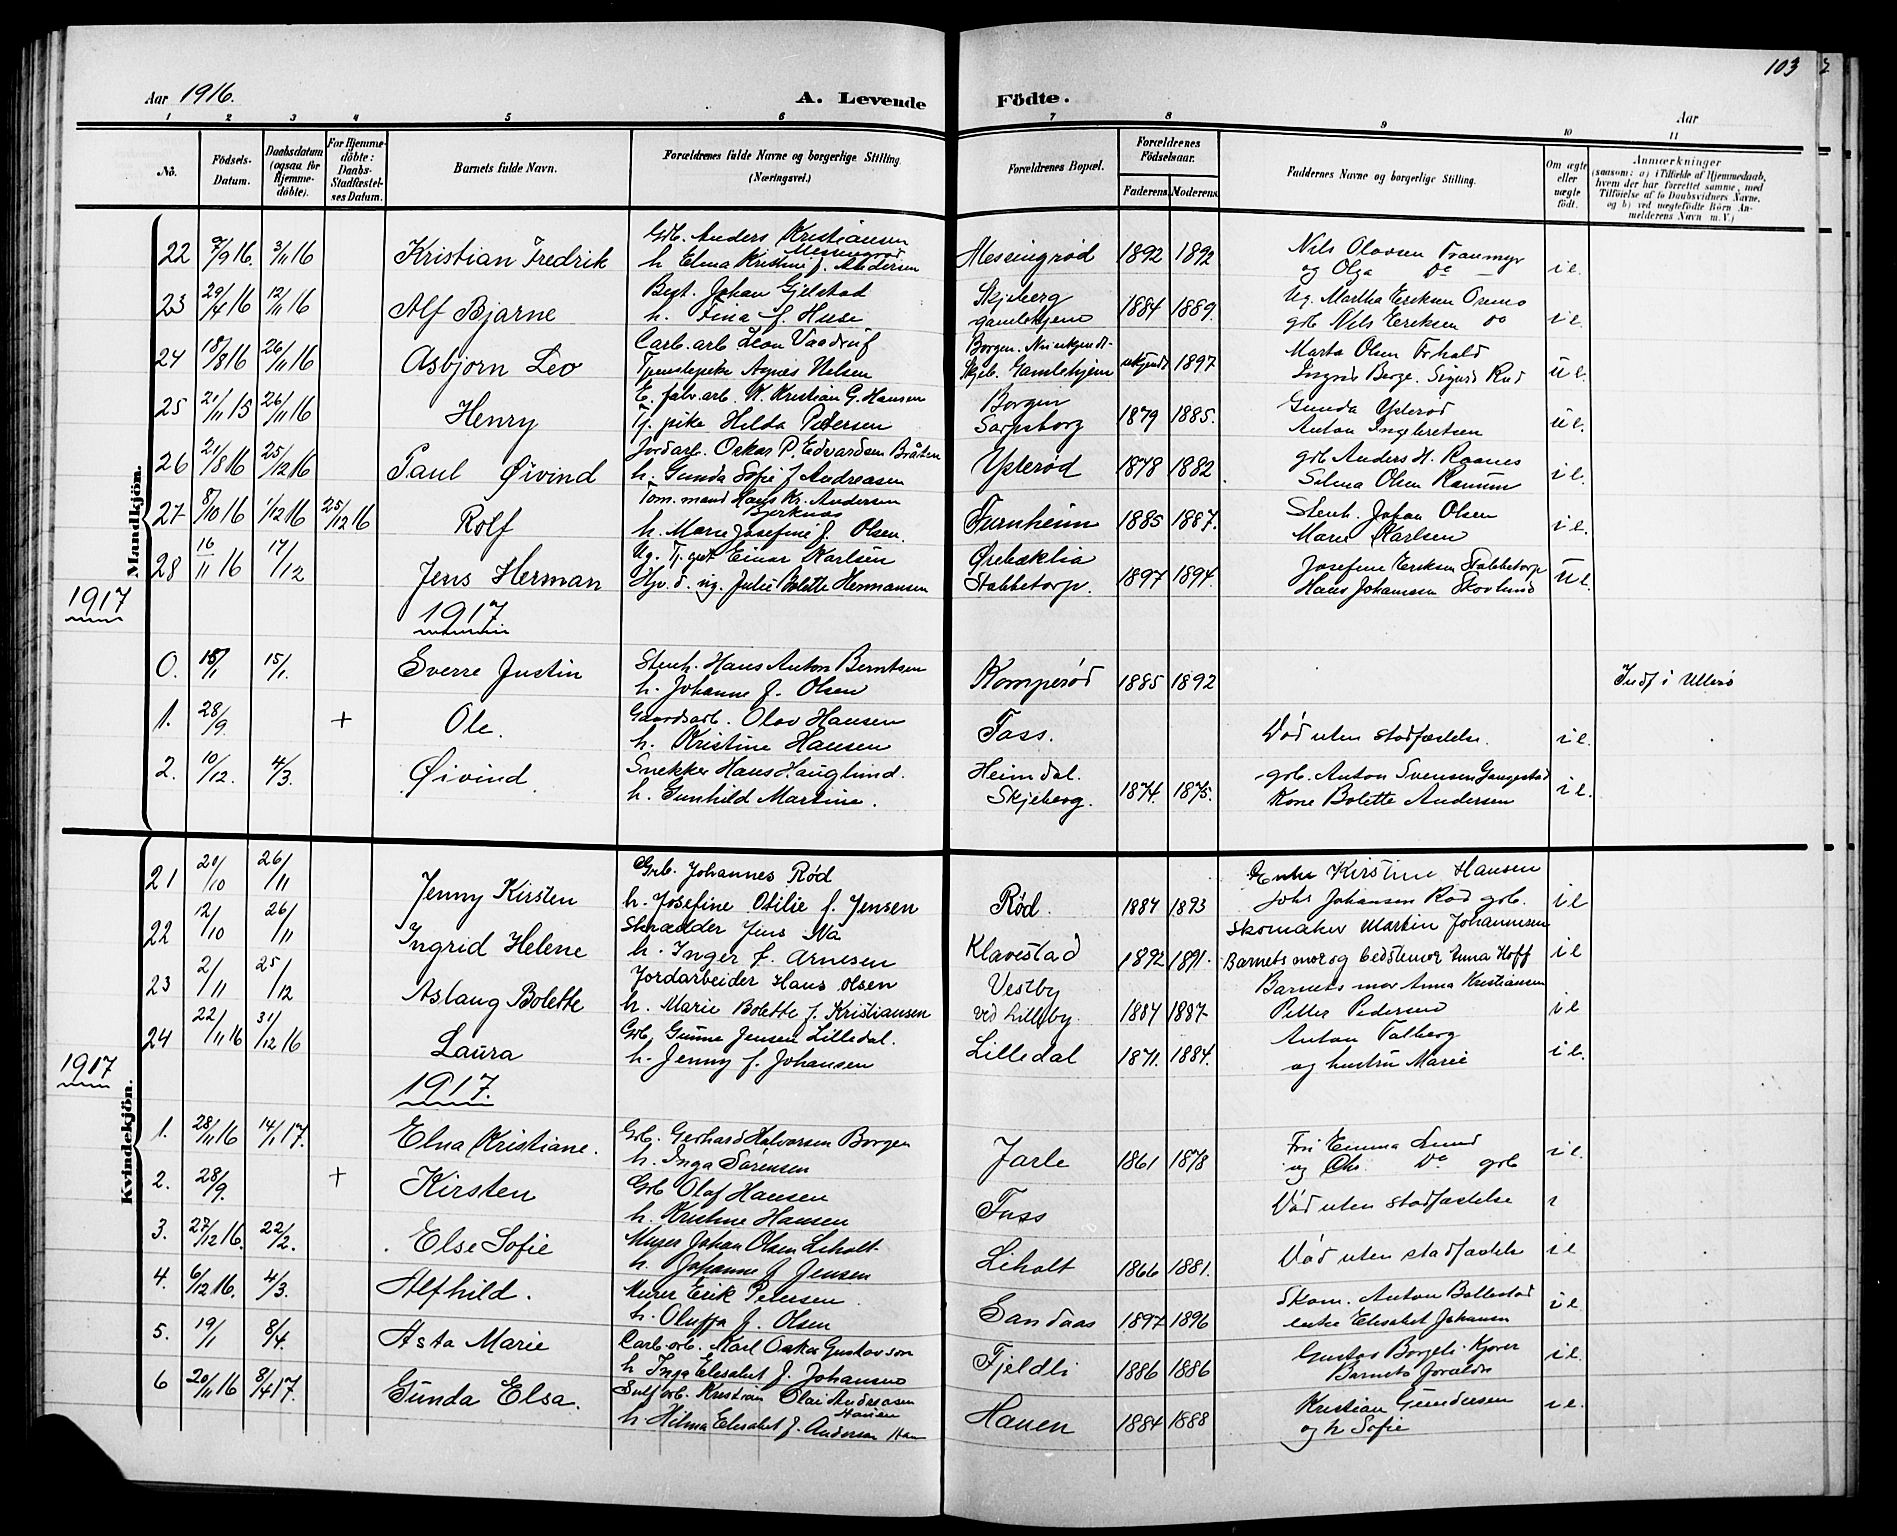 103
Aar 1916.
A. Levende Födte.
Aar
1 2 3 4 5 6 7 8 9 10 11
No.
Födsels-Datum.
Daabsdatum (ogsaa for Hjemme-döbte).
For Hjemme-döbte: Daabs-Stadfæstel-ses Datum.
Barnets fulde Navn.
Forældrenes fulde Navne og borgerlige Stilling (Næringsvei.)
Forældrenes Bopæl.
Forældrenes Födselsaar.
Faderens Moderens.
Faddernes Navne og borgerlige Stilling.
Om ægte eller uægte födt.
Anmærkninger
(saasom: a) i Tilfælde af Hjemmedaab, hvem der har forrettet samme, med Tilföielse af to Daabsvidners Navne, og b) ved uægtefödte Börn An-melderens Navn m. V.)
Mandkjön.
22 9/9 16. 3/11 16 Kristian Fredrik Grb. Anders Kristiansen Messingrød
h. Elma Kristine f. Andersen Messingrød 1892 1892 Nils Olavsen
og Olga Do i e.
23 29/4 16 12/11 16 Alf Bjarne Best. Johan Gjelstad
h. Tina f. Huse Skjeberg gamlehjem 1884 1889. Ug. Martha Eriksen Oremo
grb Nils Eriksen do i e.
24 18/8 16 26/11 16 Asbjørn Leo Carb. arb. Leon
Tjenestepike Agnes Nilsen Borgen.
Skjeb. Gamlehjem ukjendt 1897 Marta Olsen
Ingrid Berge. Sigurd Rud u e.
25 21/11 15 26/11 16 Henry E. fabr. arb. K. Kristian G. Hansen
Tj. pike Hilda Petersen Borgen
Sarpsborg 1879 1885. Gunda Ysterød
Anton Ingbretsen u e.
26 21/8 16 25/12 16 Paul Øivind Jordarb. Oskar P. Edvardsen Bråten
h. Gunda Sofie f Andreasen Ysterød 1878 1882 grb Anders H. Raanes
Selma Olsen i e.
27 8/10 16 1/12 16 25/12 16 Rolf Tøm. mand Hans Kr. Andersen Bjerknæs
h. Marie Josefine f. Olsen. Furnheim 1885 1887. Stenh. Johan Olsen
Marie Karlsen i e.
28 16/11 16 17/12 Jens Herman Ug. T. gut Einar Karlsen
Hjv. d. ug. Julie Bolette Hermansen Ørebæklia
Stabbetorp. 1897 1894. Josefine Eriksen Stabbetorp
Hans Johansen Skovlund U e.
1917
1917.
0. 18/1 15/1. Sverre Justin Stenh. Hans Anton Berntsen
h. Johanne f. Olsen Komperød 1885 1892 Indf i Ullerø
1. 28/9. + Ole. Gaardsarb. Olav Hansen
h. Kristine Hansen Tass. Død uten stadfæstelse. i e.
2. 10/12. 4/3. Øivind. Snekker Hans Hauglund.
h. Gunhild Martine. Heimdal.
Skjeberg. 1874. 1875. grb. Anton Svensen
Kone Bolette Andersen i e.
Kvindekjön.
21 20/10 26/11 Jenny Kirsten Grb. Johannes Rød
h. Josefine Otilie f. Jensen Rød. 1884 1893 Enke Kirstine Hansen
Johs Johansen Rød grb. i e
22 12/10 26/11 Ingrid Helene Skrædder Jens Na
h. Inger f. Arnesen Klavestad 1892 1891. skomaker Martin Johannesen
Barnets mor og bedstemor Anna Hoff i e
23 2/11 25/12 Aslaug Bolette Jordarbeider Hans Olsen
h. Marie Bolette f. Kristiansen Vestby
ved Lilleby. 1884 1887 Barnets mor Anna Kristiansen
Petter Pedersen i e
24 22/11 16 31/12 16 Laura Grb. Gunne Jensen Lilledal.
h. Jenny f. Johansen Lilledal 1871. 1884. Anton Talberg
og hustru Marie i e.
1917
1917.
1. 28/11 16 14/1 17. Elna Kristiane. Grb. Gerhard Halvorsen Borgen
h. Inga Sørensen Jarle 1861 1878 Fru Emma Lund
og Chr. Do grb i e.
2. 28/9. + Kirsten Grb Olaf Hansen
h. Kristine Hansen Tass Død uten stadfæstelse
3. 27/12 16. 22/2. Else Sofie Murer Johan Olsen Liholt
h. Johanne f Jensen Liholt 1866 1881. Død uten stadfæstelse i e
4. 6/12 16. 4/3. Alfhild. Murer Erik Petersen.
h. Oluffa f. Olsen Sandaas 1897 1896 Skom. Anton Ballestad
enke Elisabet Johansen i e.
5. 19/1 8/4. Asta Marie Carb. arb. Karl Oskar Gustavson
h Inga Elisabet f. Johansen Fjeldli 1886 1886 Gustav
Barnets foreldre i e.
6 20/11 16 8/4 17. Gunda Elsa. Sulf arb. Kristian Olai Andreasen Hauen
h Hilma Elisabet f. Andersen Hauen 1884 1888 Kristian Gundersen
og h Sofie i e.